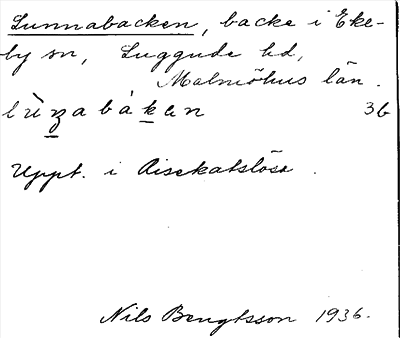 Lunnabacken, backe i Eke-
by sn, Luggude hd,
Malmöhus län.
36
Uppt. i Risekatslösa.
Nils Bengtsson 1936.